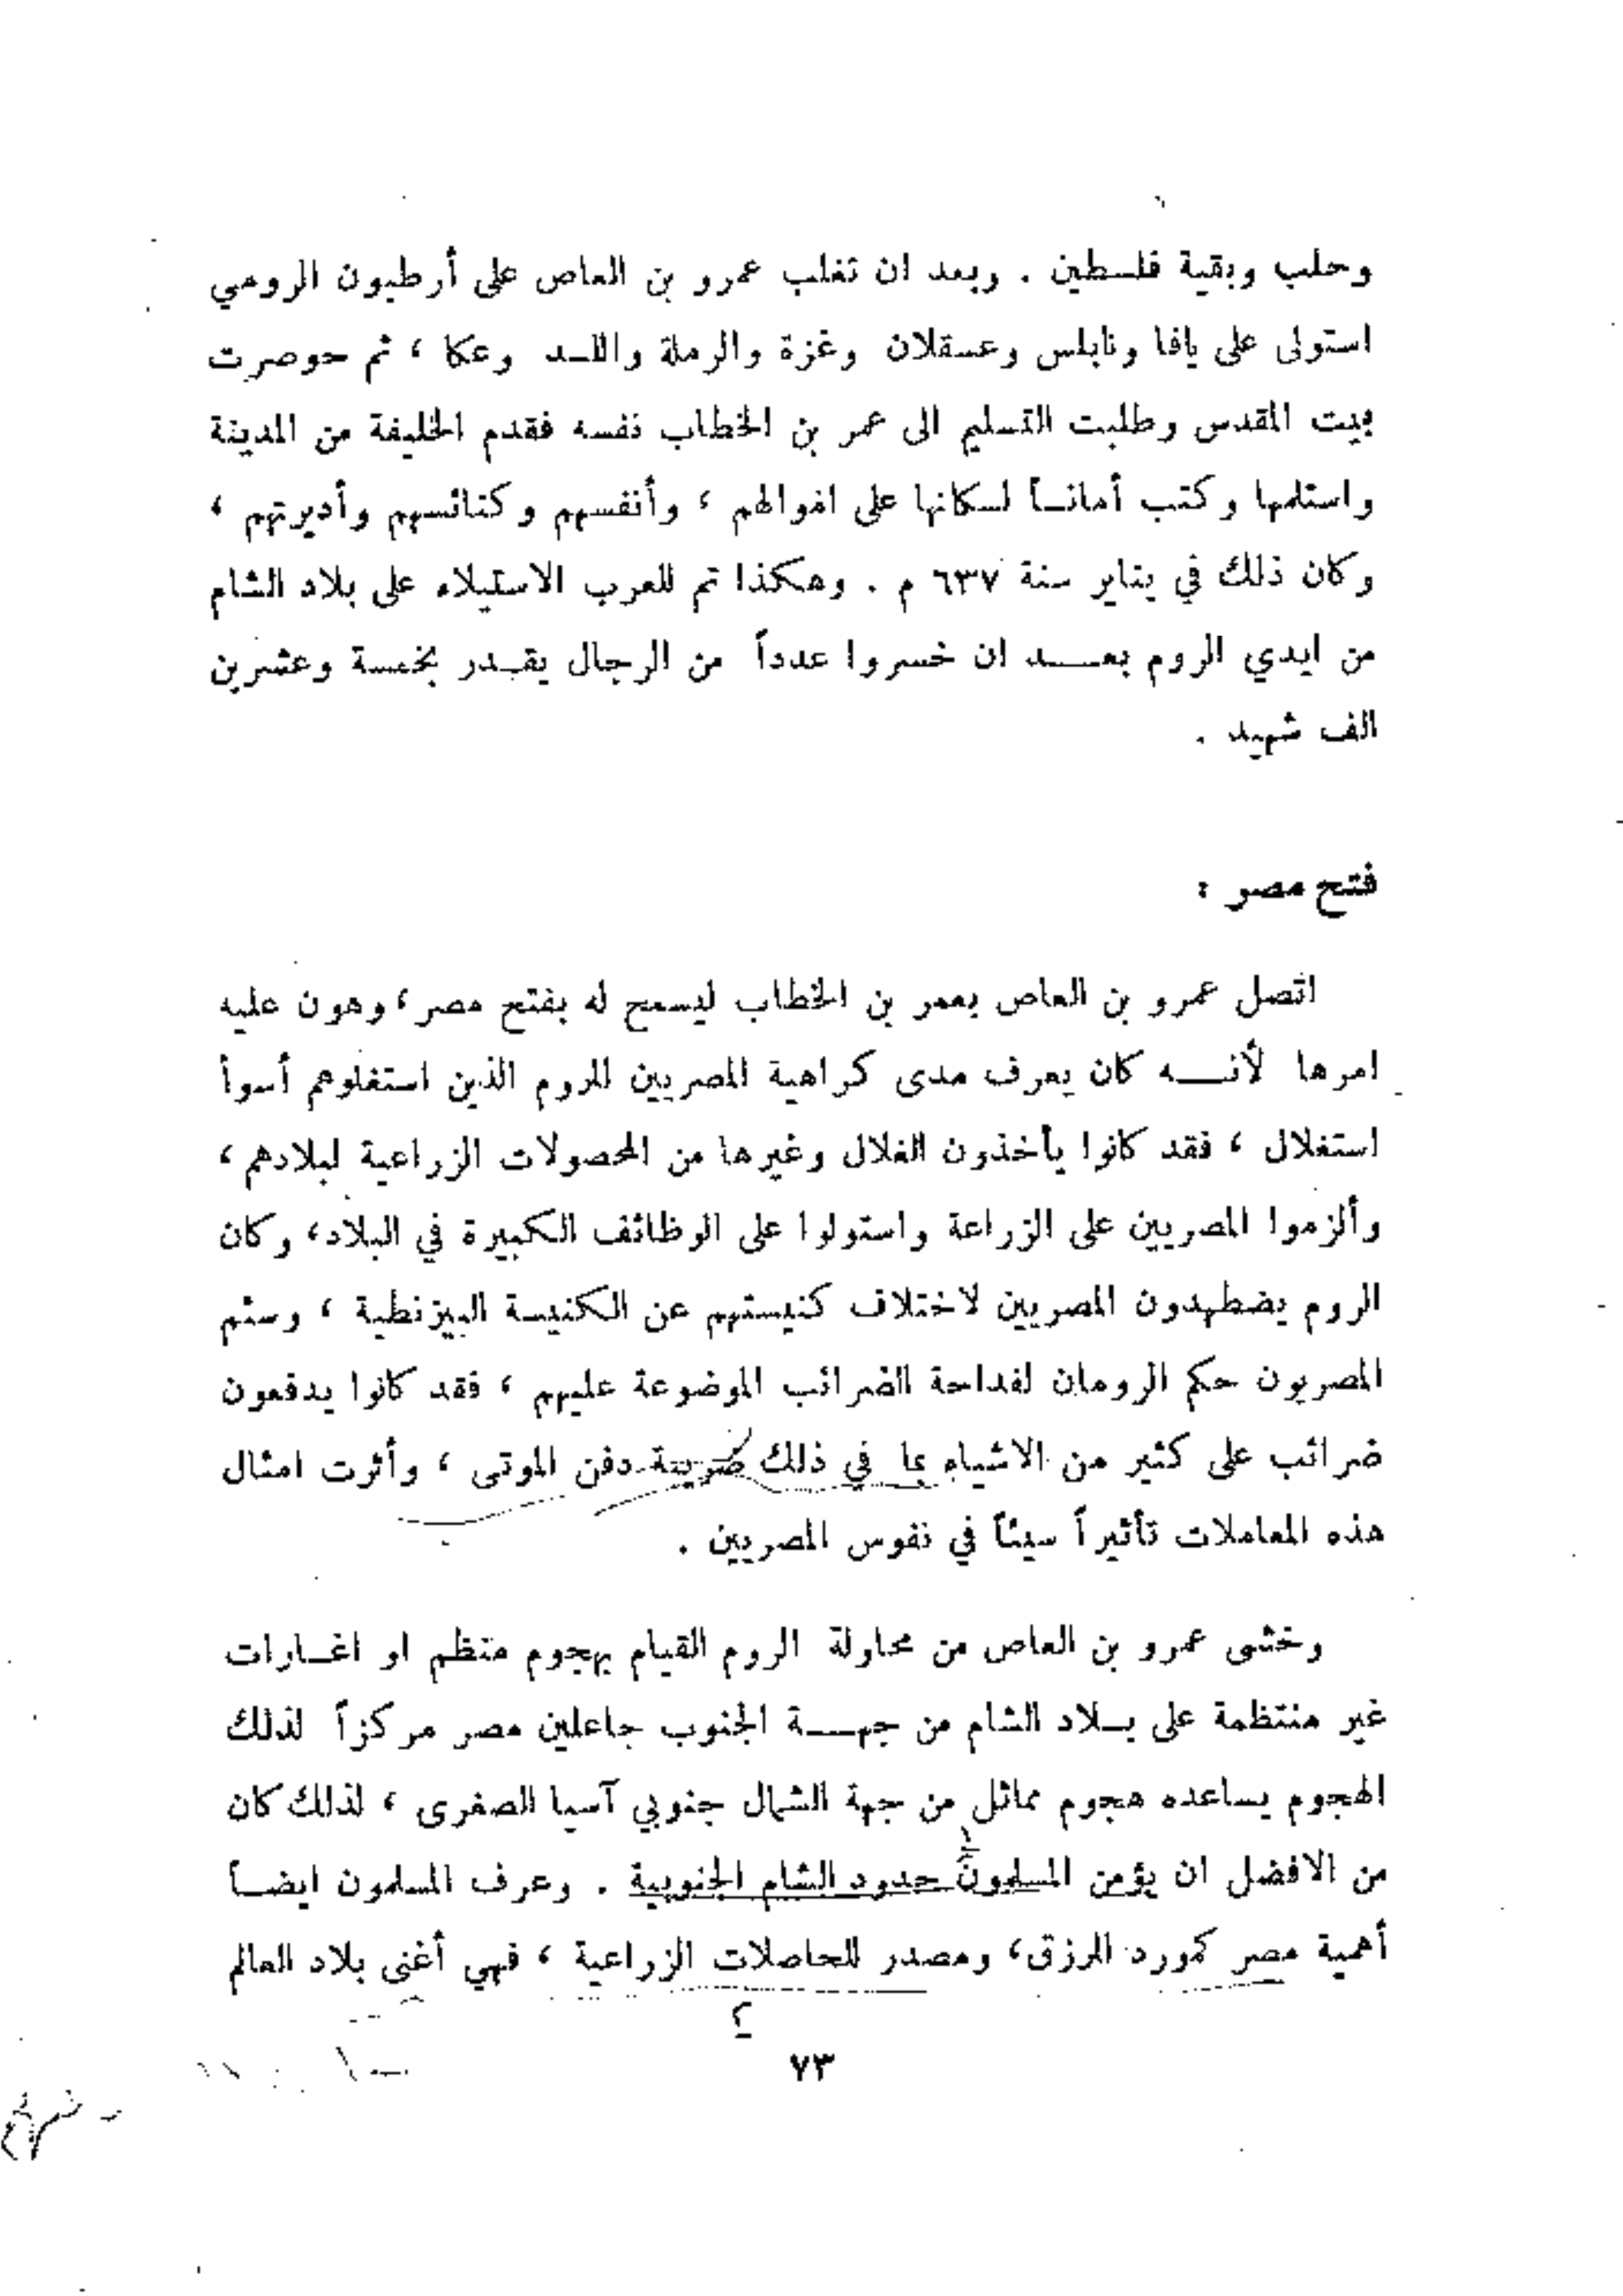 وحلب وبقية فلسطين . وبعد ان تغلب عمرو بن العاص على أرطبون الرومي
استولى على يافا ونابلس وعسقلان وغزة والرملة واللد وعكا ، ثم حوصرت
بيت المقدس وطلبت التسليم الى عمر بن الخطاب نفسه فقدم الخليفة من المدينة
واستلمها وكتب أماناً لسكانها على اموالهم ، وأنفسهم وكنائسهم وأديرتهم ،
وكان ذلك في يناير سنة ٦٣٧ م . وهكذا تم للعرب الاستيلاء على بلاد الشام
من ايدي الروم بعد ان خسروا عدداً من الرجال يقدر بخمسة وعشرين
الف شهيد .
فتح مصر :
اتصل عمرو بن العاص بعمر بن الخطاب ليسمح له بفتح مصر ، وهون عليه
امرها لأنه كان يعرف مدى كراهية المصريين للروم الذين استغلوهم أسوأ
استغلال ، فقد كانوا يأخذون الغلال وغيرها من المحصولات الزراعية لبلادهم ،
وألزموا المصريين على الزراعة واستولوا على الوظائف الكبيرة في البلاد ، وكان
الروم يضطهدون المصريين لاختلاف كنيستهم عن الكنيسة البيزنطية ، وسئم
المصريون حكم الرومان لفداحة الضرائب الموضوعة عليهم ، فقد كانوا يدفعون
ضرائب على كثير من الاشياء بما في ذلك ضريبة دفن الموتى ، وأثرت امثال
هذه المعاملات تأثيراً سيئاً في نفوس المصريين .
وخشى عمرو بن العاص من محاولة الروم القيام بهجوم منظم او اغارات
غير منتظمة على بلاد الشام من جهة الجنوب جاعلين مصر مركزاً لذلك
الهجوم يساعده هجوم مماثل من جهة الشمال جنوبي آسيا الصغرى ، لذلك كان
من الافضل ان يؤمن المسلمون حدود الشام الجنوبية . وعرف المسلمون ايضاً
أهمية مصر كمورد للرزق ، ومصدر للحاصلات الزراعية ، فهي أغنى بلاد العالم
٧٣